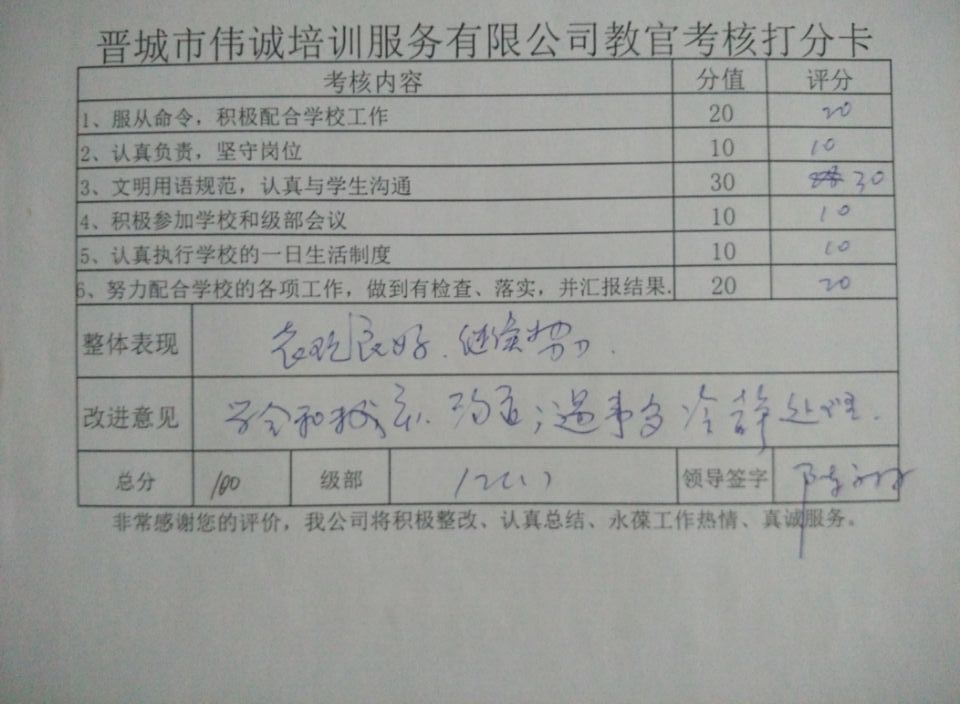 晋城市伟诚培训服务有限公司教官考核打分卡
考核内容 分值 评分
1、服从命令，积极配合学校工作 20 20
2、认真负责，坚守岗位 10 10
3、文明用语规范，认真与学生沟通 30 30
4、积极参加学校和级部会议 10 10
5、认真执行学校的一日生活制度 10 10
6、努力配合学校的各项工作，做到有检查、落实，并汇报结果. 20 20
整体表现 表现良好.继续努力.
改进意见 学会和 沟通;遇事多冷静处理.
总分 100 级部 领导签字
非常感谢您的评价，我公司将积极整改、认真总结、永葆工作热情、真诚服务。